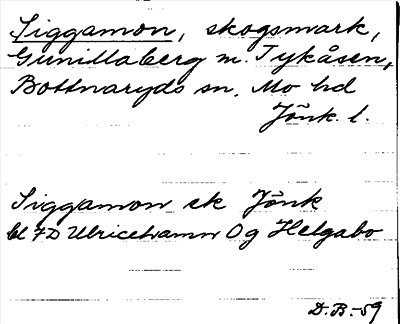 Siggamon, skogsmark,
Gunillaberg m. Tykåsen,
Bottnaryds sn. Mo hd
Jönk. l.
Siggamon ek Jönk
bl 7D Ulricehamn Og Helgabo
D.B.-59